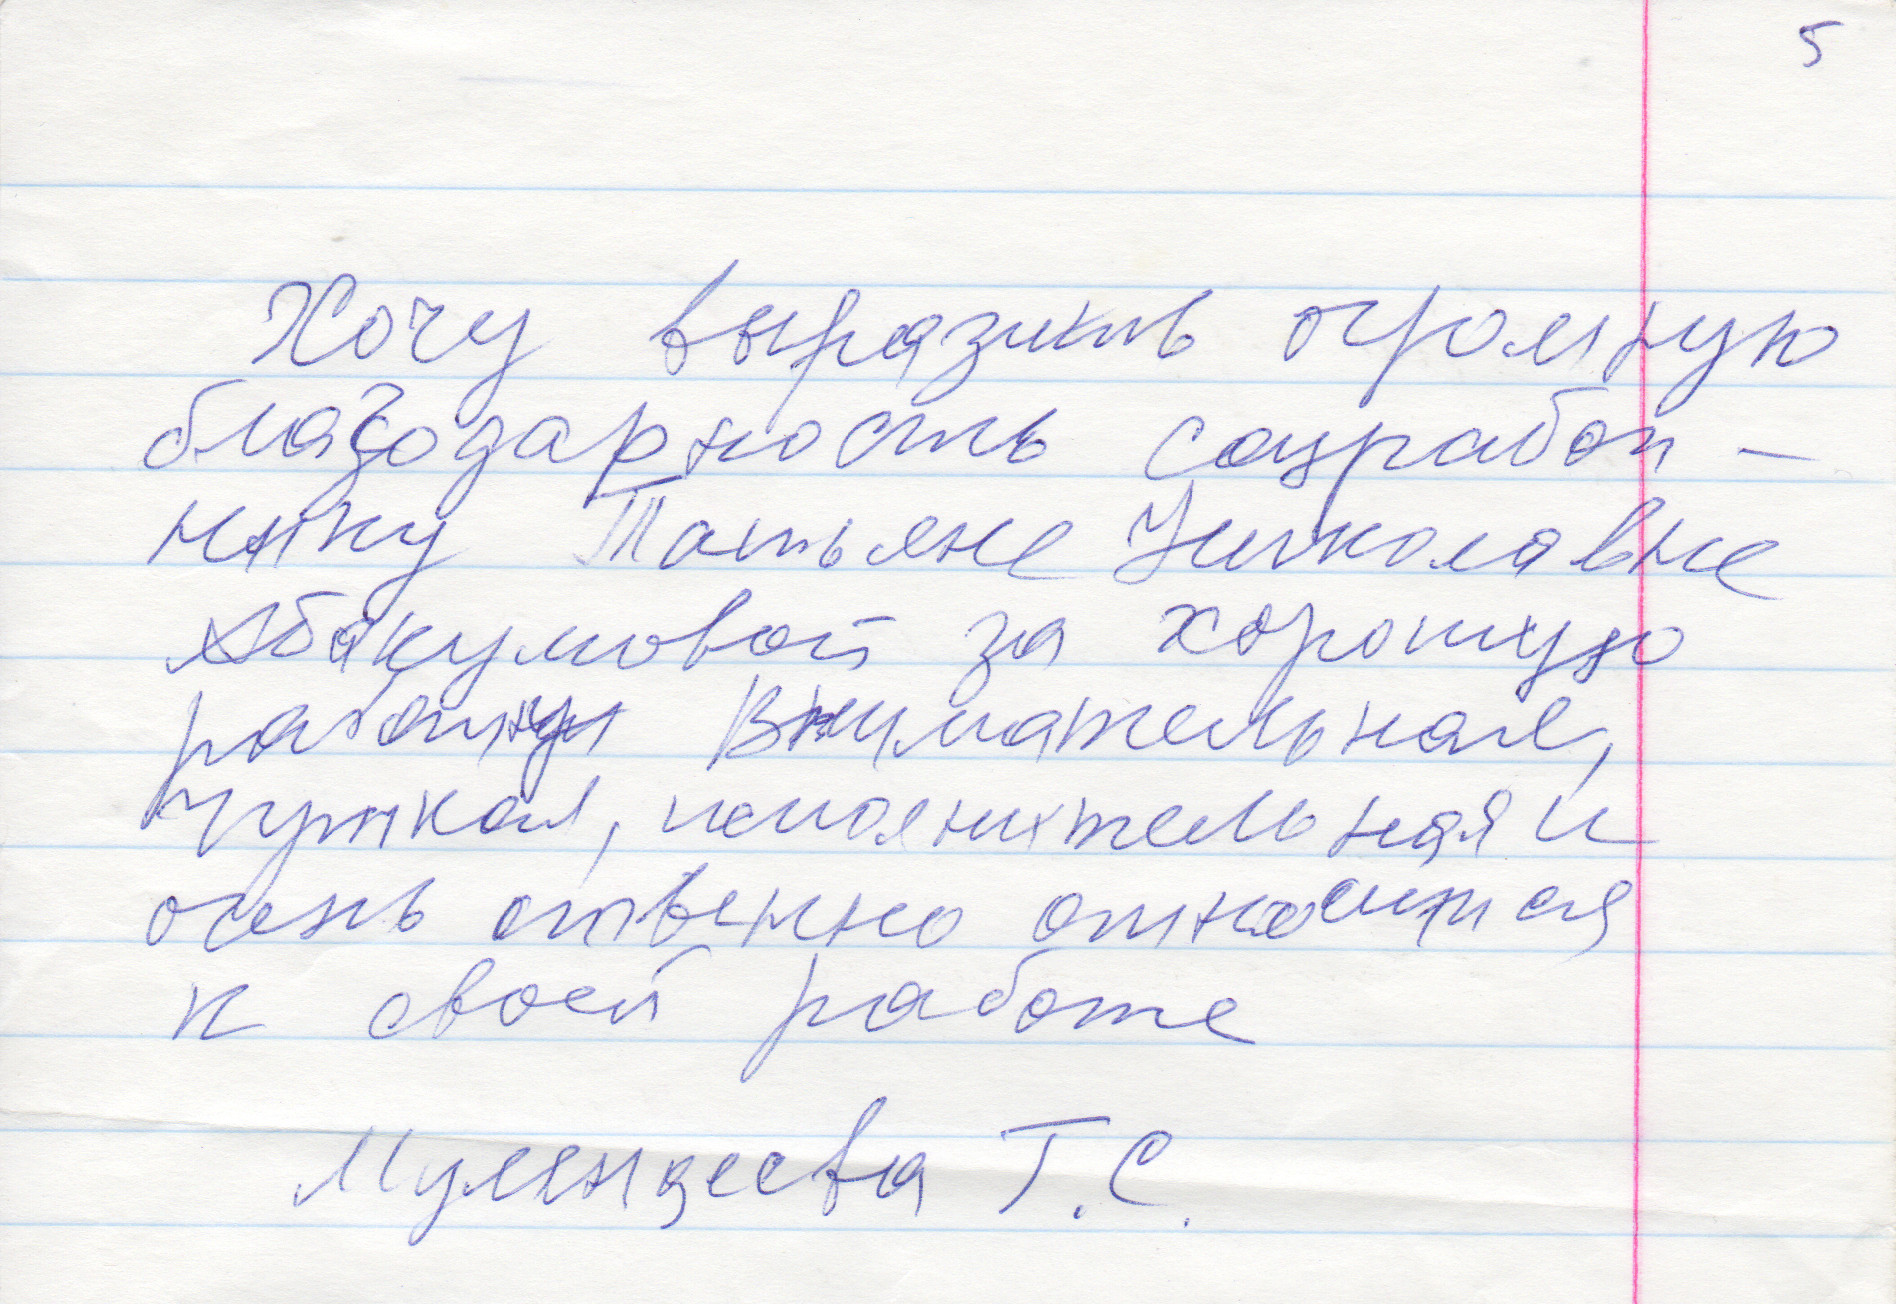 5
Хочу выразить огромную
благодарность соцработ-
нику Татьяне Николавне
Абакумовой за хорошую
работу Внимательная,
Чуткая, исполнительная и
очень отвенно относится
к своей работе
Т.С.